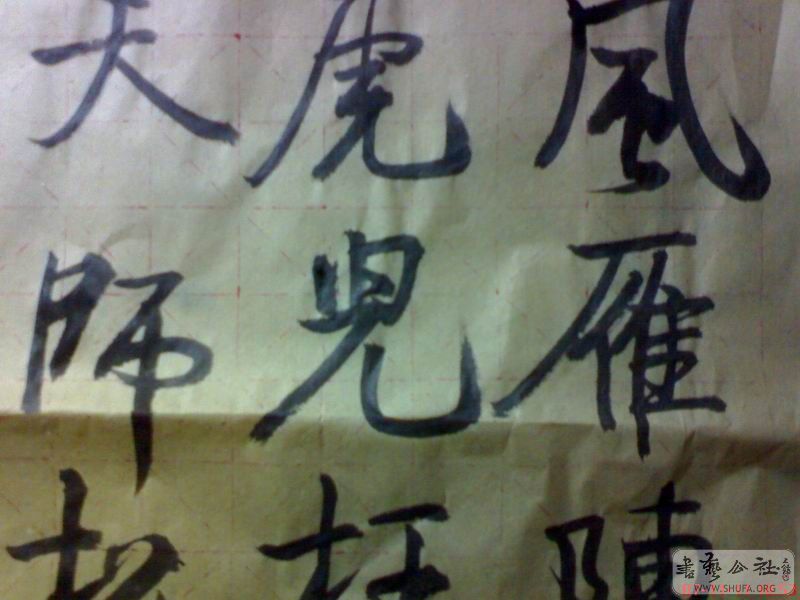 風雁
虎児
天師
書藝公社
WWW.SHUFA.ORG